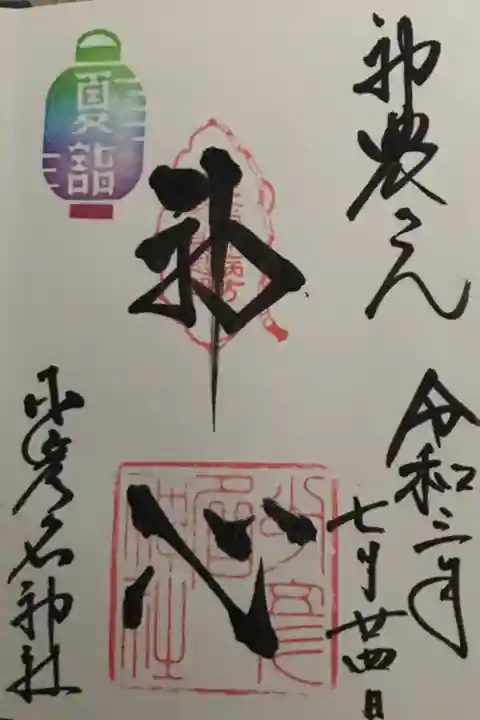 神農さん
令和三年
七月廿四日
神心
少彦名神社
夏詣
少彦名神社